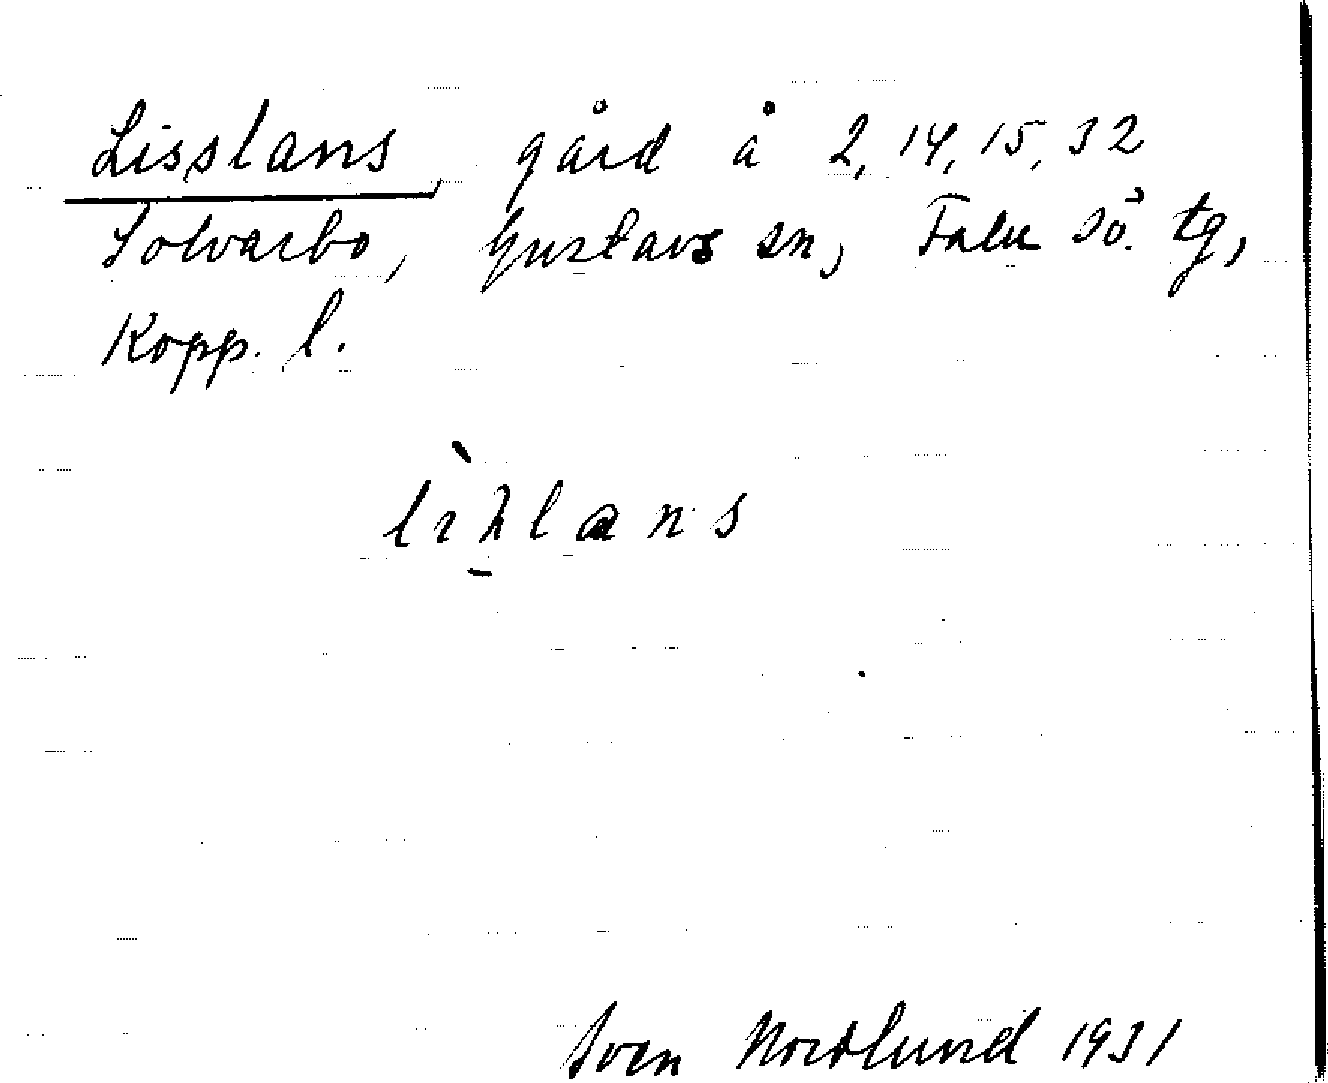 Lisslans, gård å 2, 14, 15, 32
Solvarbo, Gustavs sn, Falu sö. tg,
Kopp. l.
Sven Nordlund 1931